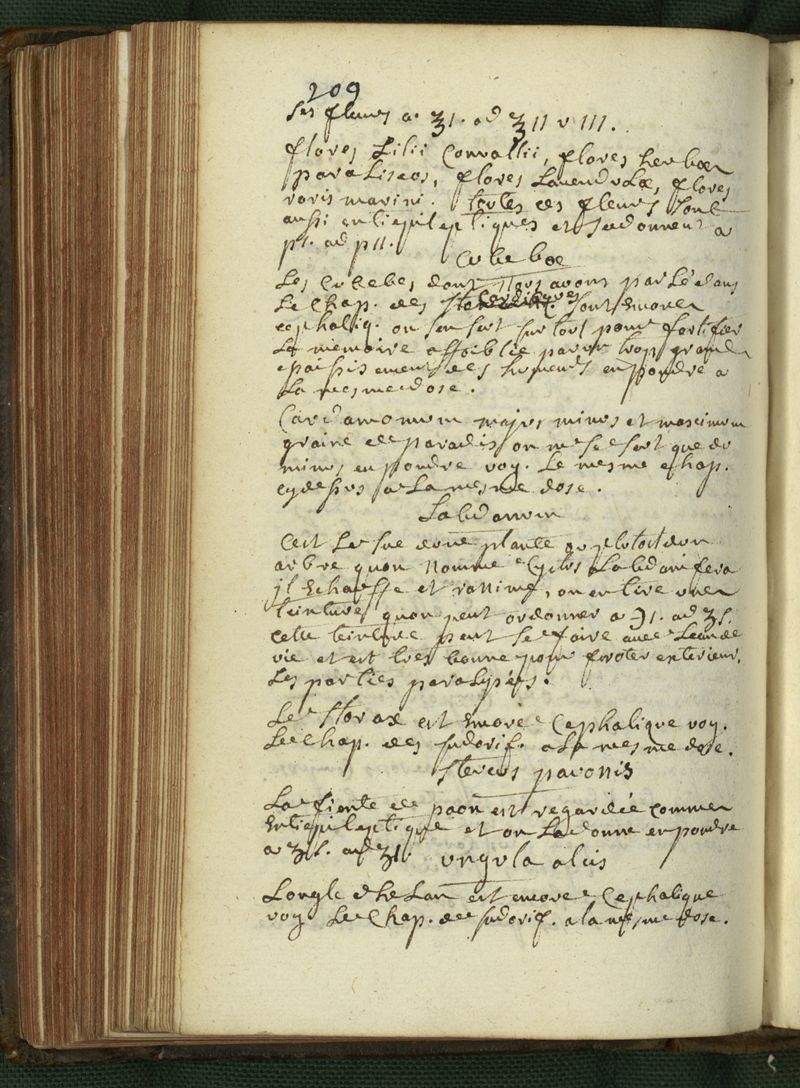 209
Ses fleurs a ʒ1. ad ʒ11 v 111.
flores Lilii Convallii, flores herbæ
paraliseos, flores Lavendulæ, flores
roris marini. toutes ces fleurs sont
aussi entiepileptiques et se donnent a
p1. ad p11.
Cubebæ
Les Cubebes dont nous avons parlé dans
Le Chap. des sont encore
cephaliq. on sen sert sur tout pour fortifier
La memoire affoiblie par un trop grand
epaissisement des humeurs en poudre a
La mesme dose.
Cardamomum majus minus et maximum
graine de paradis on ne se sert que du
minus en poudre voy. Le mesme chap.
cy dessus a La mesme dose.
Labdanum
Cest Le suc dune plante ou plutost dun
arbre quon nomme Cystus Labdanifera
il Echauffe et ranime, on en tire une
teinture quon peut ordonner a ℈1. ad ʒs.
Cette teinture peut se faire avec Leau de
vie et est tres bonne pour froter exterieur.
Les parties paralysées.
Le storax est encore Cephalique voy.
Le Chap. des sudorif. a La mesme dose.
stercus pavonis
La fiente de paon est regardée comme
Entiepileptique et on La donne en poudre
a ʒs. ad ʒ1.
ungula alcis
Longle dhelan est encore Cephalique
voy Le Chap. des sudorif. a la mesme dose.